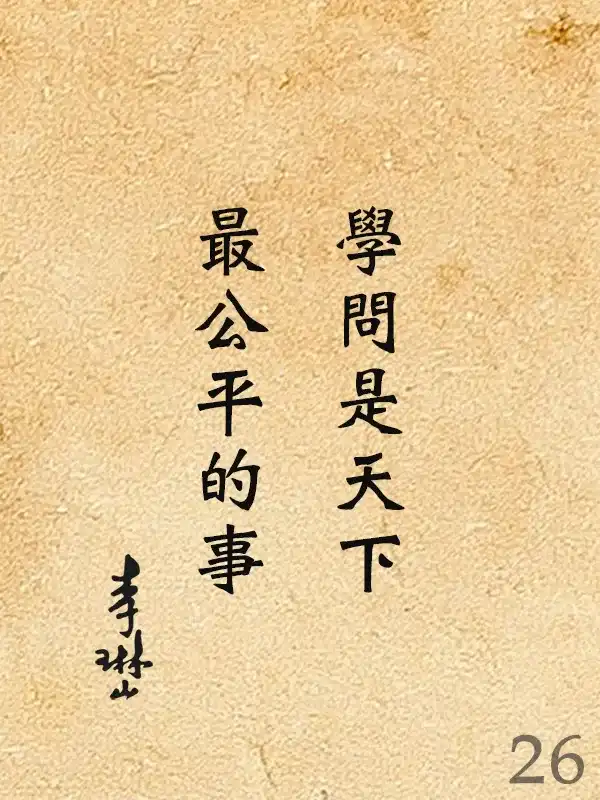 學問是天下
最公平的事
李琳山
26